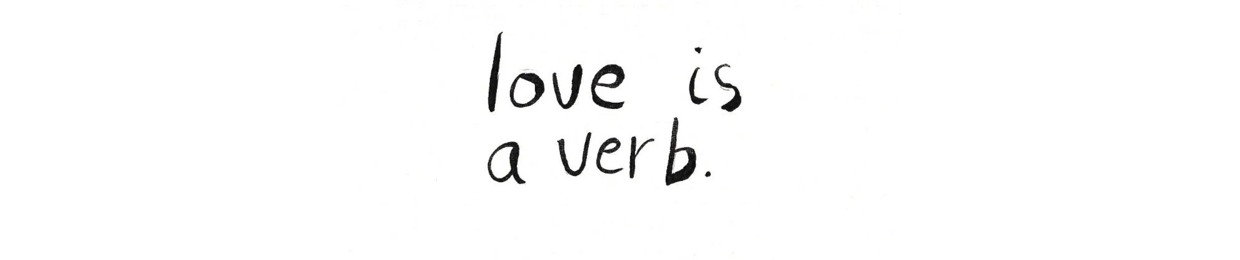 love is
a verb.